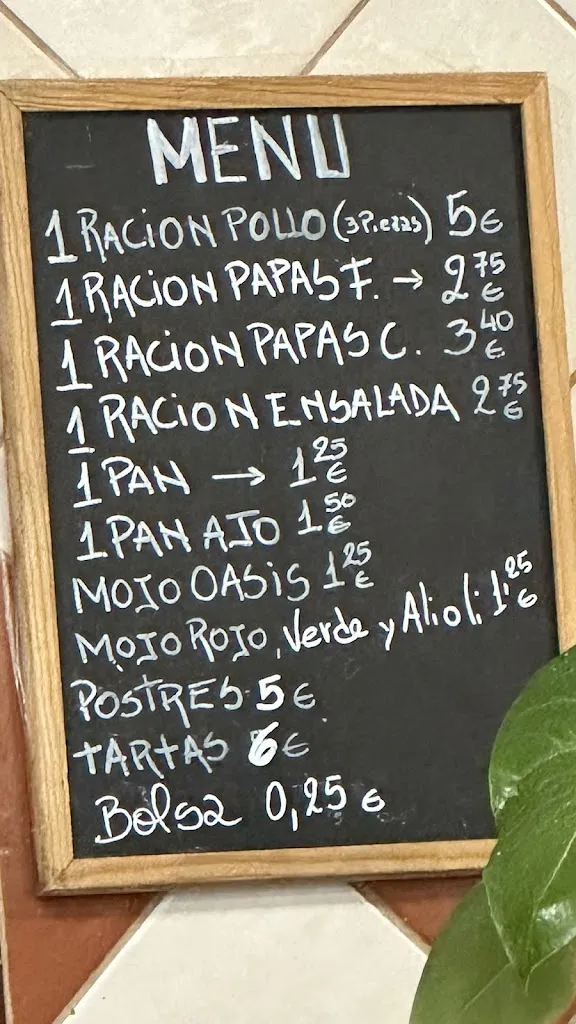 MENU
1 RACION POLLO (3 Piezas) 5€
1 RACION PAPAS F. → 2,75 €
1 RACION PAPAS C. 3,40 €
1 RACION ENSALADA 2,75 €
1 PAN → 1,25 €
1 PAN AJO 1,50 €
MOJO OASIS 1,25 €
MOJO ROJO, Verde y Alioli 1,25 €
POSTRES 5 €
TARTAS 6 €
Bolsa 0,25 €